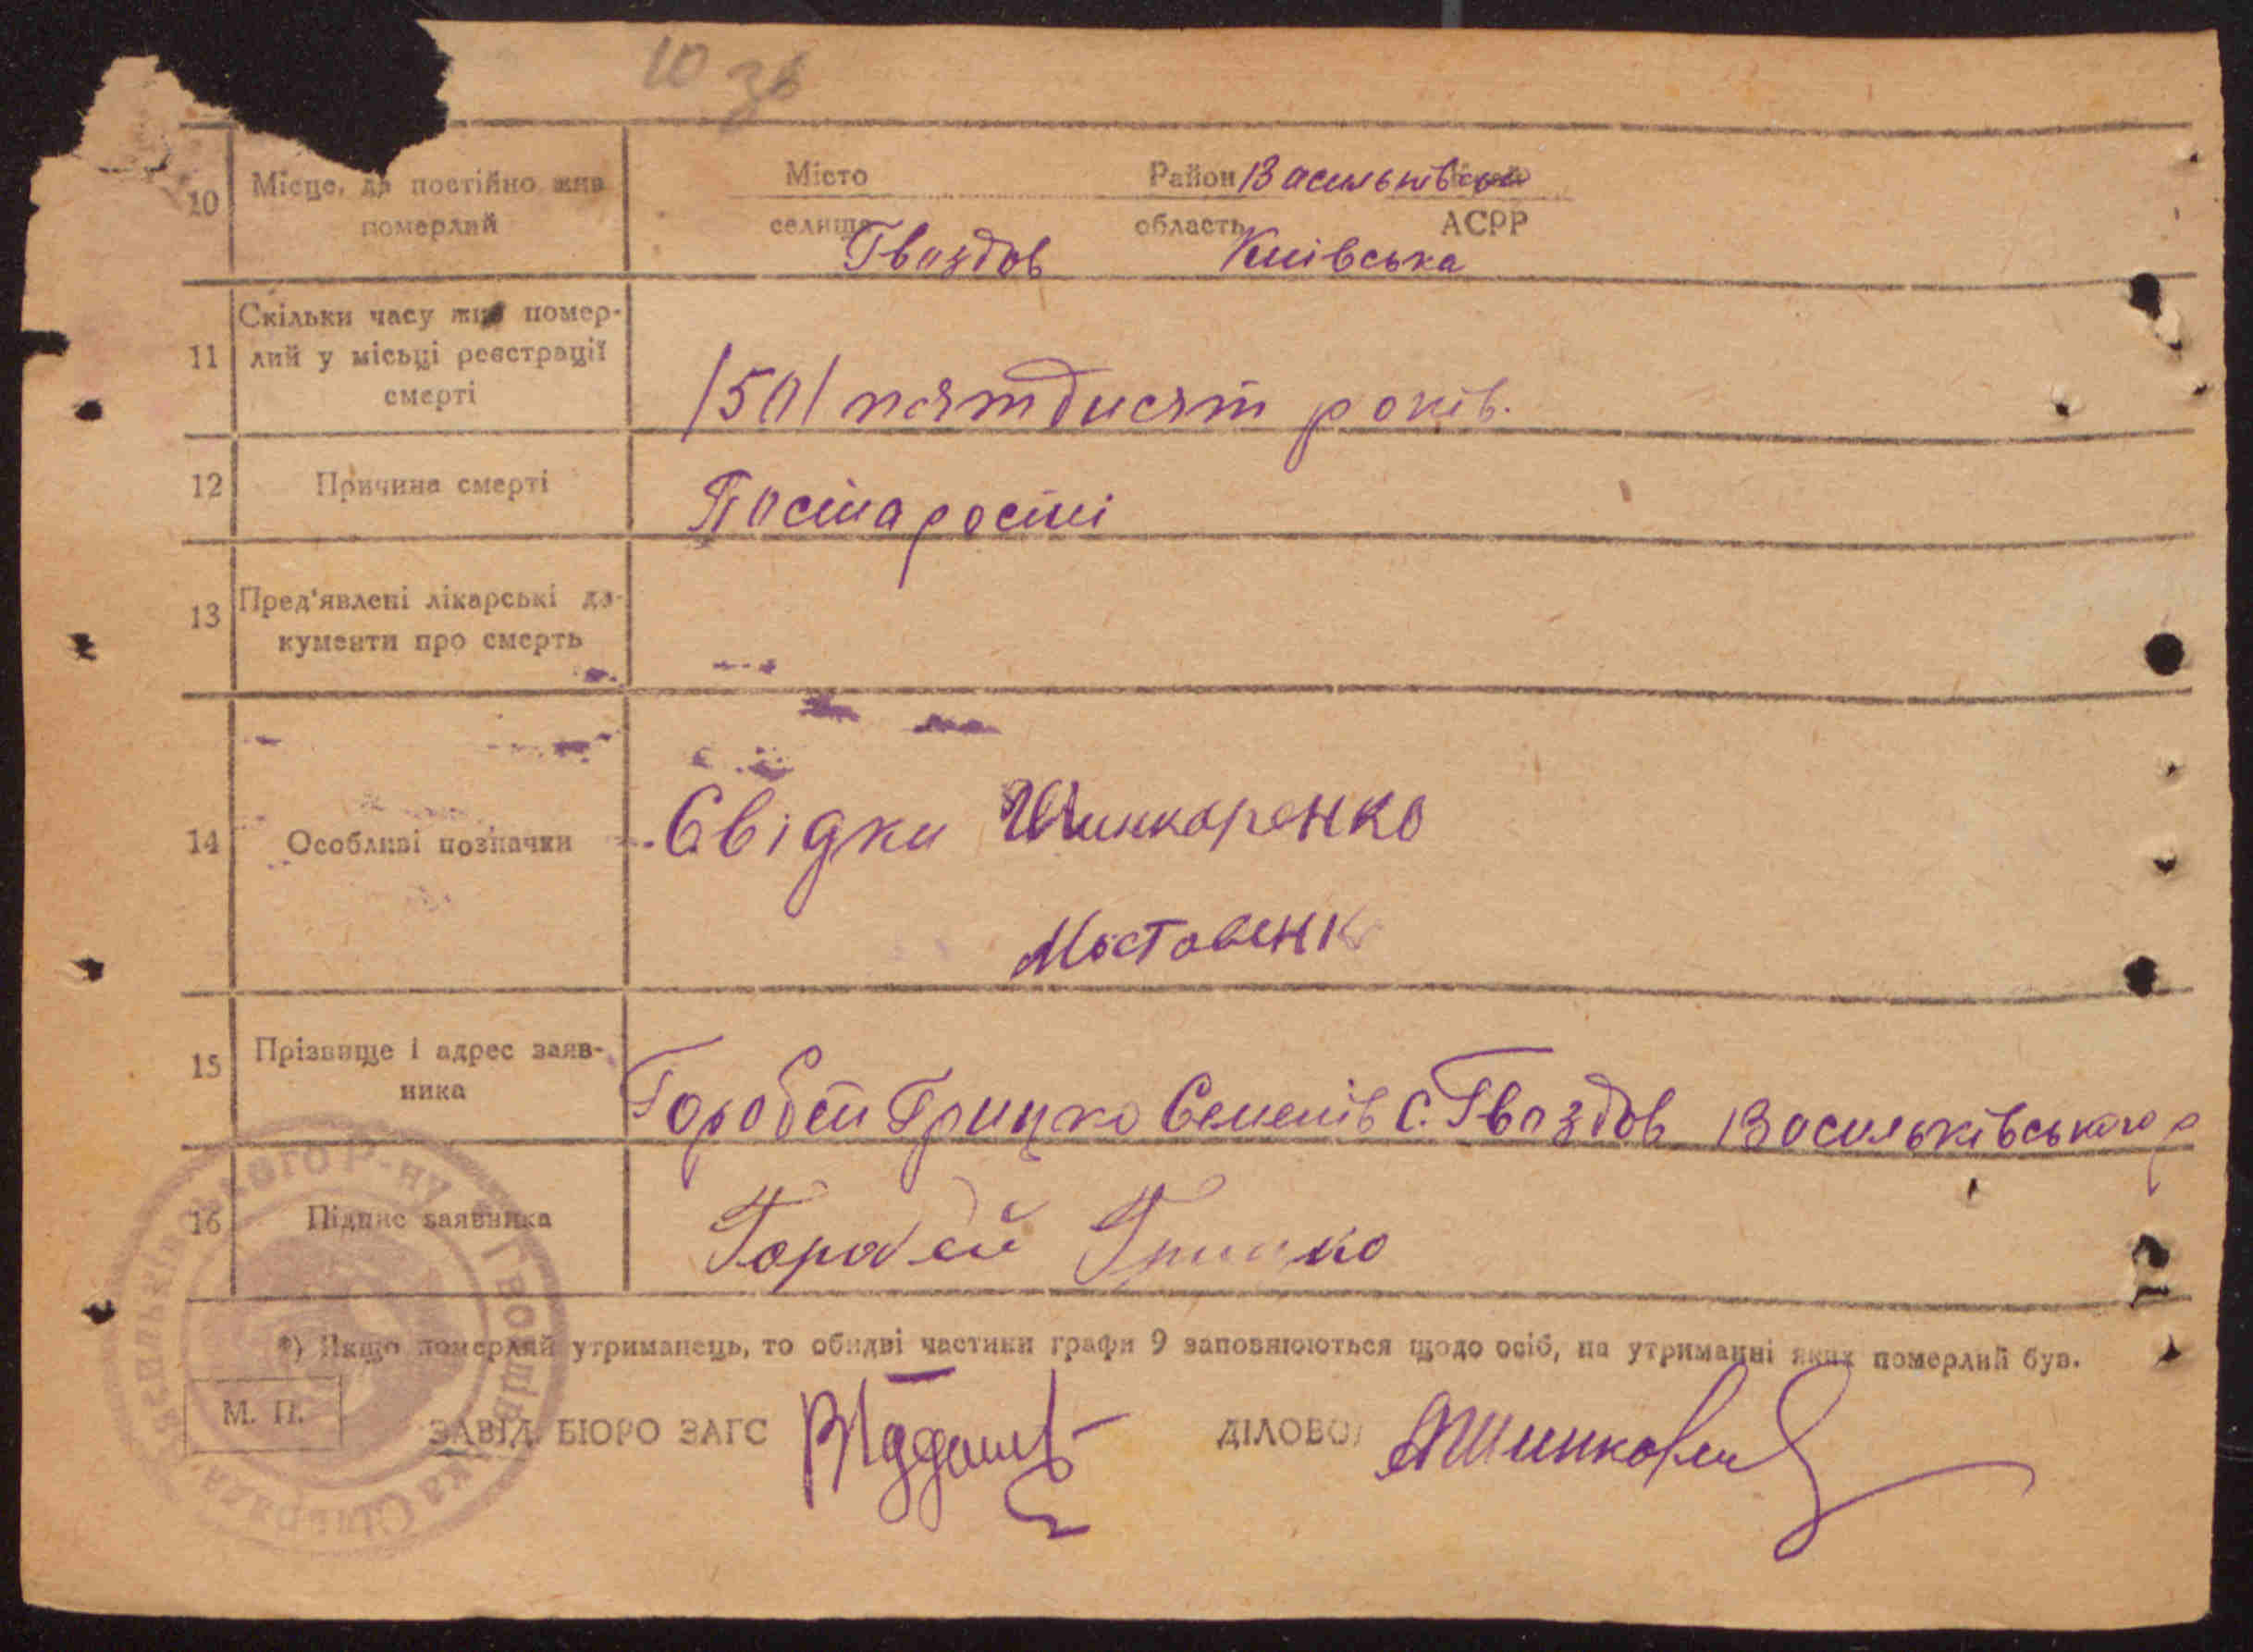 10 зв
10 Місце, де постійно жив Місто Район Васильківськи
померлий селище область АСРР
Гвоздов Київська
Скільки часу жив помер-
11 лий у місьці реєстрації
смерті
/50/ пятдисят років.
12 Причина смерті Постарости
13 Пред'явлені лікарські до-
кументи про смерть
14 Особливі позначки Свідки Шинкаренко
Мостовенко
15 Прізвище і адрес заяв-
ника
Горобей Грицко Семенів с. Гвоздов Васильківського р
16 Підпис заявника Горобей Грицко
*) Якщо померлий утриманець, то обидві частини графи 9 заповнюються щодо осіб, на утриманні яких померлий був.
М. П.
ЗАВІД. БЮРО ЗАГС ДІЛОВОД